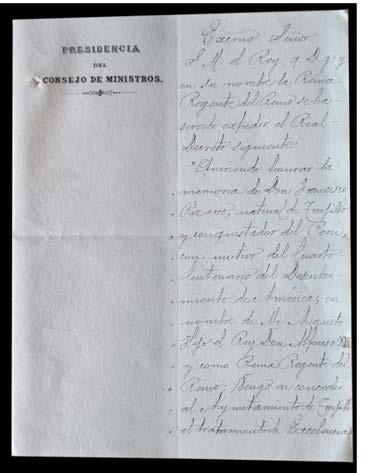 PRESIDENCIA
DEL
CONSEJO DE MINISTROS.
Excmo Señor
S. M. el Rey q. D. g. y
en su nombre la Reina
Regente del Reino se ha
servido expedir el Real-
Decreto siguiente:
"Queriendo honrar la
" memoria de Don Francisco
" Pizarro, natural de Trujillo
" y conquistador del Perú,
" con motivo del Cuarto
" Centenario del Descubri-
" miento de América; en
" nombre de Mi Augusto
" Hijo el Rey Don Alfonso XIII
" y como Reina Regente del
" Reino; Vengo en conceder
" al Ayuntamiento de Trujillo
" el tratamiento de Excelencia